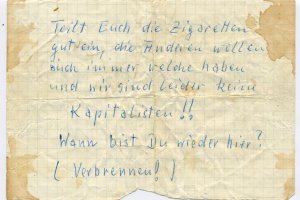 Teilt Euch die Zigaretten
gut ein, die Anderen wollen
auch immer welche haben
und wir sind leider keine
Kapitalisten!!
Wann bist Du wieder hier?
(Verbrennen!)